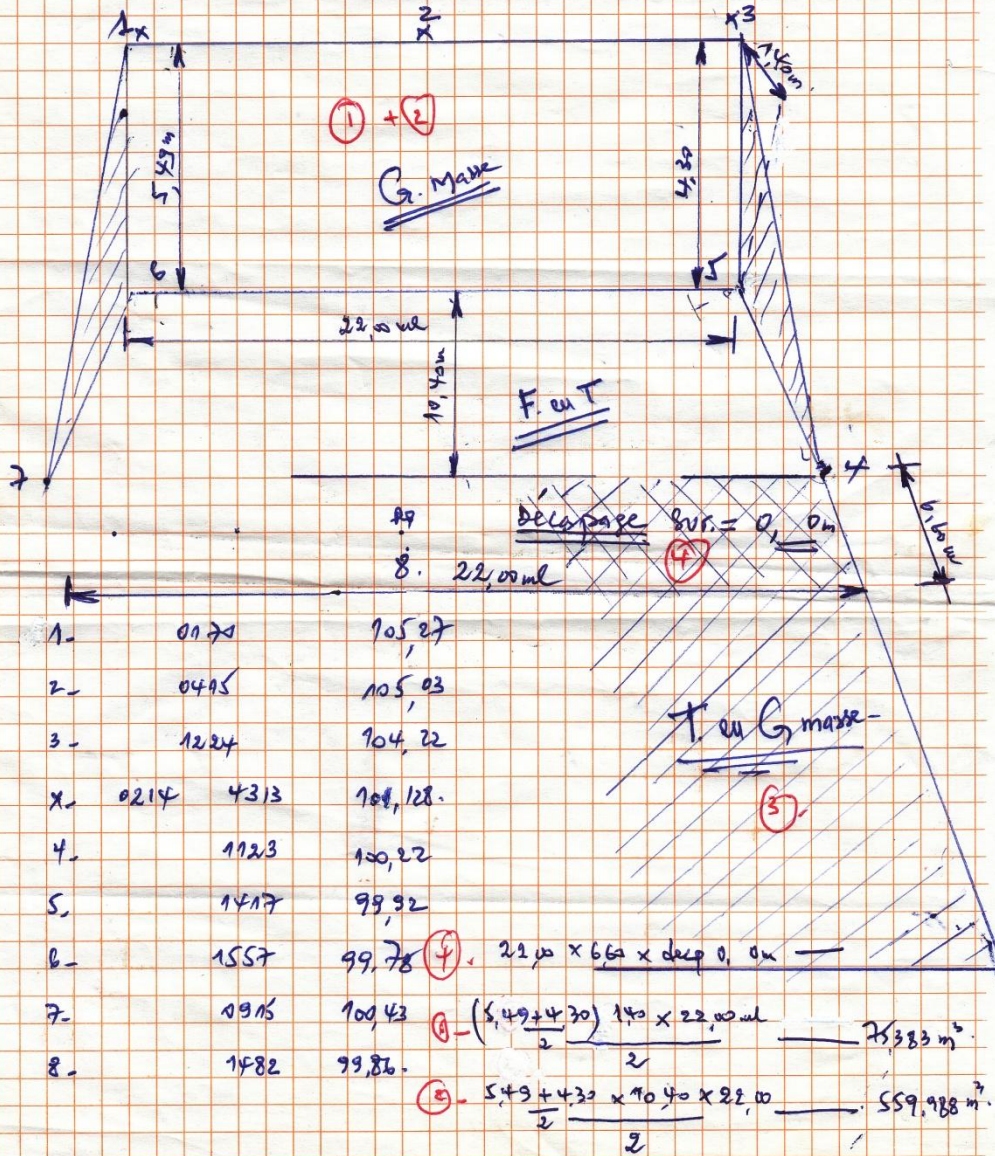 1x 2 x x3
1,40m
① + ②
5,49m
4,30
G. Masse
6 5
22,00 ml
10,40m
F. en T
7 4
6,60ml
Décapage Sur. = 0, 0m
④
8. 22,00ml
1- 0170 105,27
2- 0415 105,03
3- 1224 104,22
x- 0214 4313 101,128.
4- 1123 100,22
5, 1417 99,92
6- 1557 99,78
7- 0915 100,43
8- 1482 99,86.
T. en G masse-
③.
④. 22,00 x 6,60 x decp 0, 0m —
①- (5,49+4,30)/2 1,40 x 22,00ml / 2 — 75,383 m³
②- 5,49+4,30/2 x 10,40 x 22,00 / 2 — 559,988 m³.